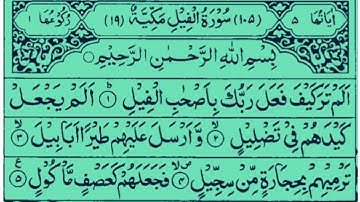 اٰیَاتُهَا ۵ (۱۰۵) سُوْرَةُ الْفِیْلِ مَكِّیَّةٌ (۱۹) رُكُوْعُهَا ۱
بِسْمِ اللّٰهِ الرَّحْمٰنِ الرَّحِیْمِ
اَلَمْ تَرَ كَیْفَ فَعَلَ رَبُّكَ بِاَصْحٰبِ الْفِیْلِ ۱ اَلَمْ یَجْعَلْ
كَیْدَهُمْ فِیْ تَضْلِیْلٍ ۲ وَّاَرْسَلَ عَلَیْهِمْ طَیْرًا اَبَابِیْلَ ۳
تَرْمِیْهِمْ بِحِجَارَةٍ مِّنْ سِجِّیْلٍ ۴ فَجَعَلَهُمْ كَعَصْفٍ مَّاْكُوْلٍ ۵